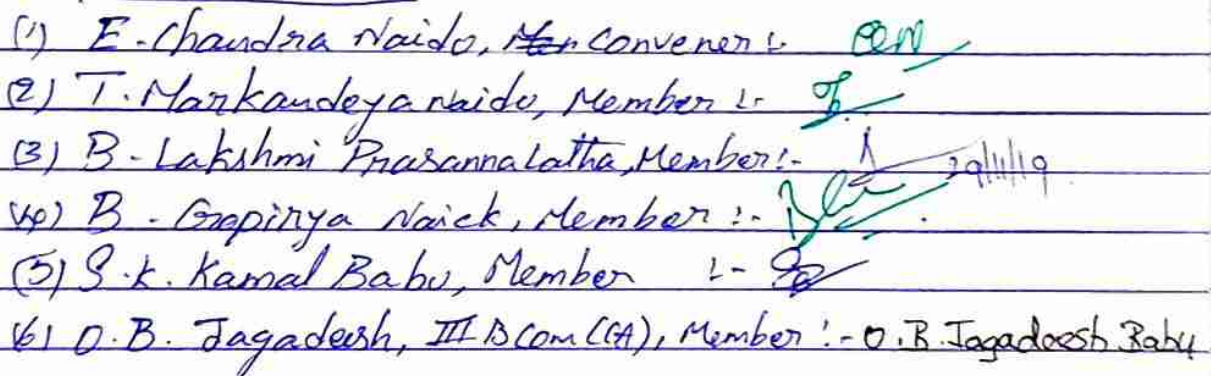 (1) E. Chandra Naido, Convener :-
(2) T. Markandeya naido, Member :-
(3) B. Lakshmi Prasanna Latha, Member :- 29/11/19
(4) B. Gopinya Naick, Member :-
(5) S.K. Kamal Babu, Member :-
(6) O.B. Jagadeesh, III B Com (CA), Member :- O.B. Jagadeesh Babu